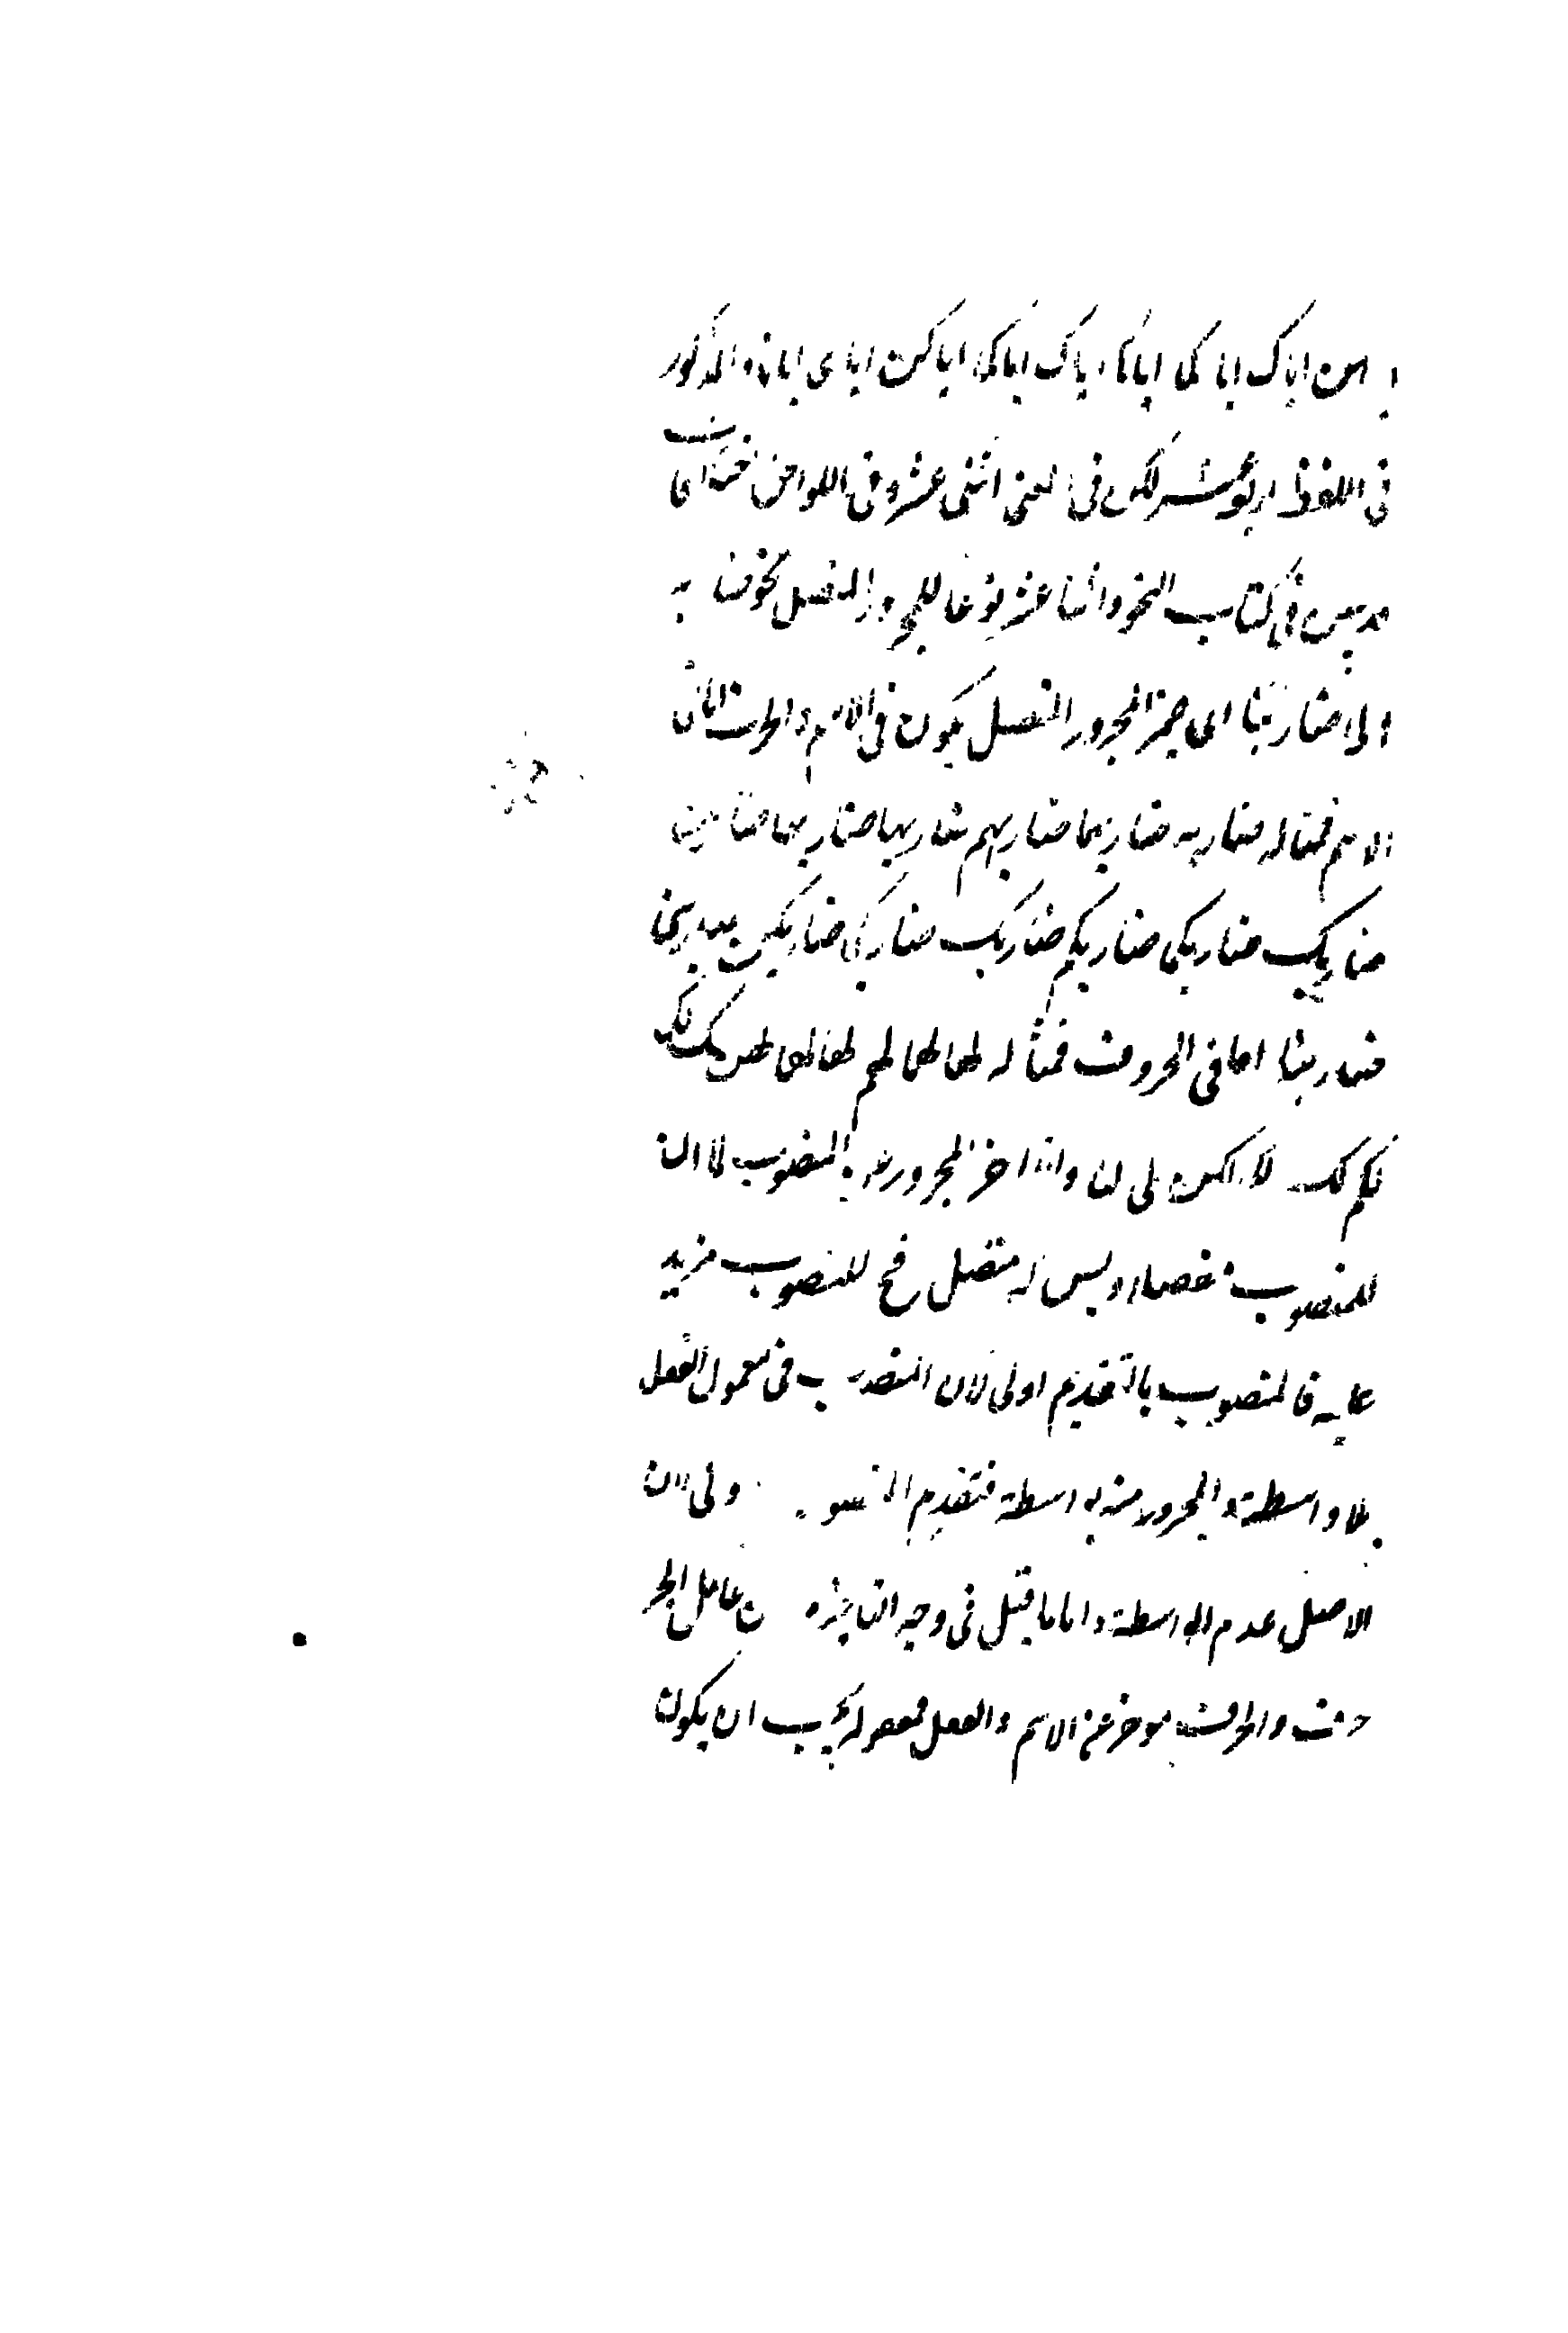 اياهن اياك اياكما اياكم اياك اياكما اياكن اياى ايانا والمذكور
فى اللفظ اربع عشر لكن فى المعنى اثنى عشر وفى اللواحق
فى كتاب النحو واثنا عشر نوعا للمجرور المتصل نحو ضاربه
الى ضاربنا اى ضمير المجرور المتصل يكون فى الاسم والحرف اما فى
الاسم فمثاله ضاربه ضاربهما ضاربهم ضاربها ضاربهما ضاربهن
ضاربك ضاربكما ضاربكم ضاربك ضاربكما ضاربكن ضاربى
ضاربنا اما فى الحروف فمثاله له لهما لهم لها لهما لهن لك لكما
لكم لك لكما لكن لى لنا وانما اخر المجرور عن المنصوب لما ان
للمنصوب منفصلا وليس له منفصل رجح للمنصوب مزيد
عليه فالمنصوب بالتقديم اولى لان المنصوب فى معمول الفعل
بلا واسطة والمجرور منه بواسطة فتقديم المنصوب اولى لان
الاصل عدم الواسطة واما ما قيل فى وجه التاخير ان عامل الجر
حرف والحرف موخر عن الاسم والفعل فمعموله يجب ان يكون